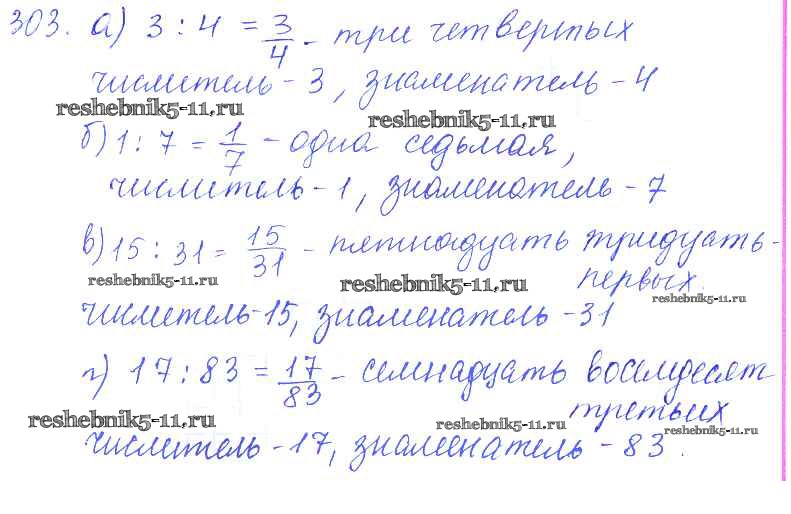 303. а) 3 : 4 = 3/4 - три четвертых
числитель - 3, знаменатель - 4
reshebnik5-11.ru reshebnik5-11.ru
б) 1 : 7 = 1/7 - одна седьмая,
числитель - 1, знаменатель - 7
в) 15 : 31 = 15/31 - пятнадцать тридцать-
первых.
reshebnik5-11.ru reshebnik5-11.ru reshebnik5-11.ru
числитель - 15, знаменатель - 31
г) 17 : 83 = 17/83 - семнадцать восемдесят
третьих
reshebnik5-11.ru reshebnik5-11.ru reshebnik5-11.ru
числитель - 17, знаменатель - 83.